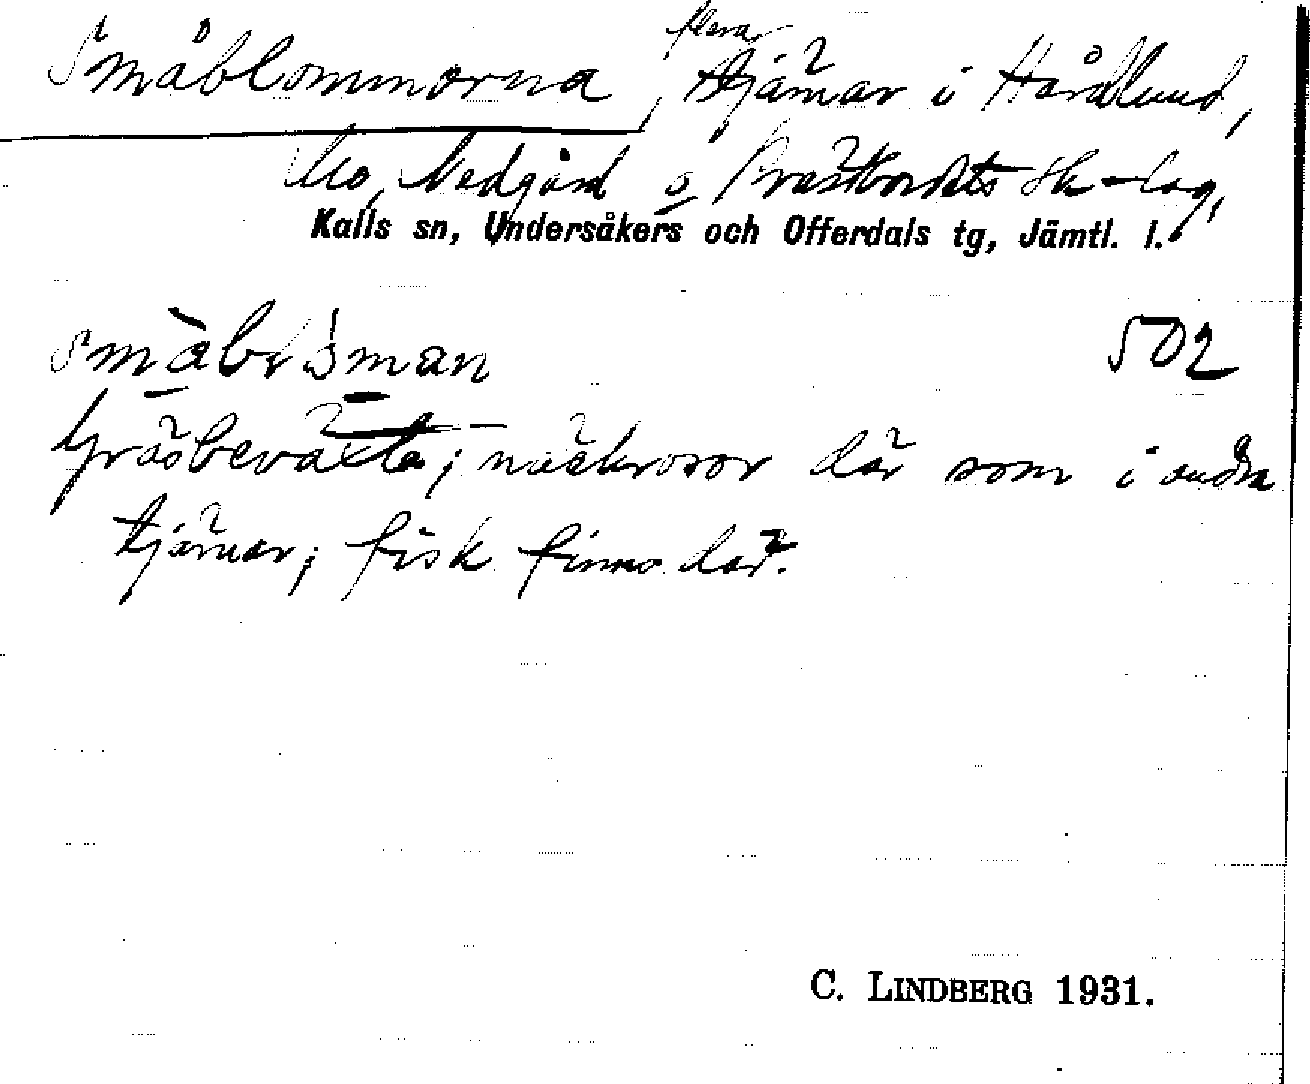 Småblommorna, flera tjärnar i Hårdlund,
Mo, Nedgård o Prästbordets sk-lag,
Kalls sn, Undersåkers och Offerdals tg, Jämtl. l.
502
Gräsbeväxta; näckrosor där som i andra
tjärnar; fisk finns där.
C. LINDBERG 1931.